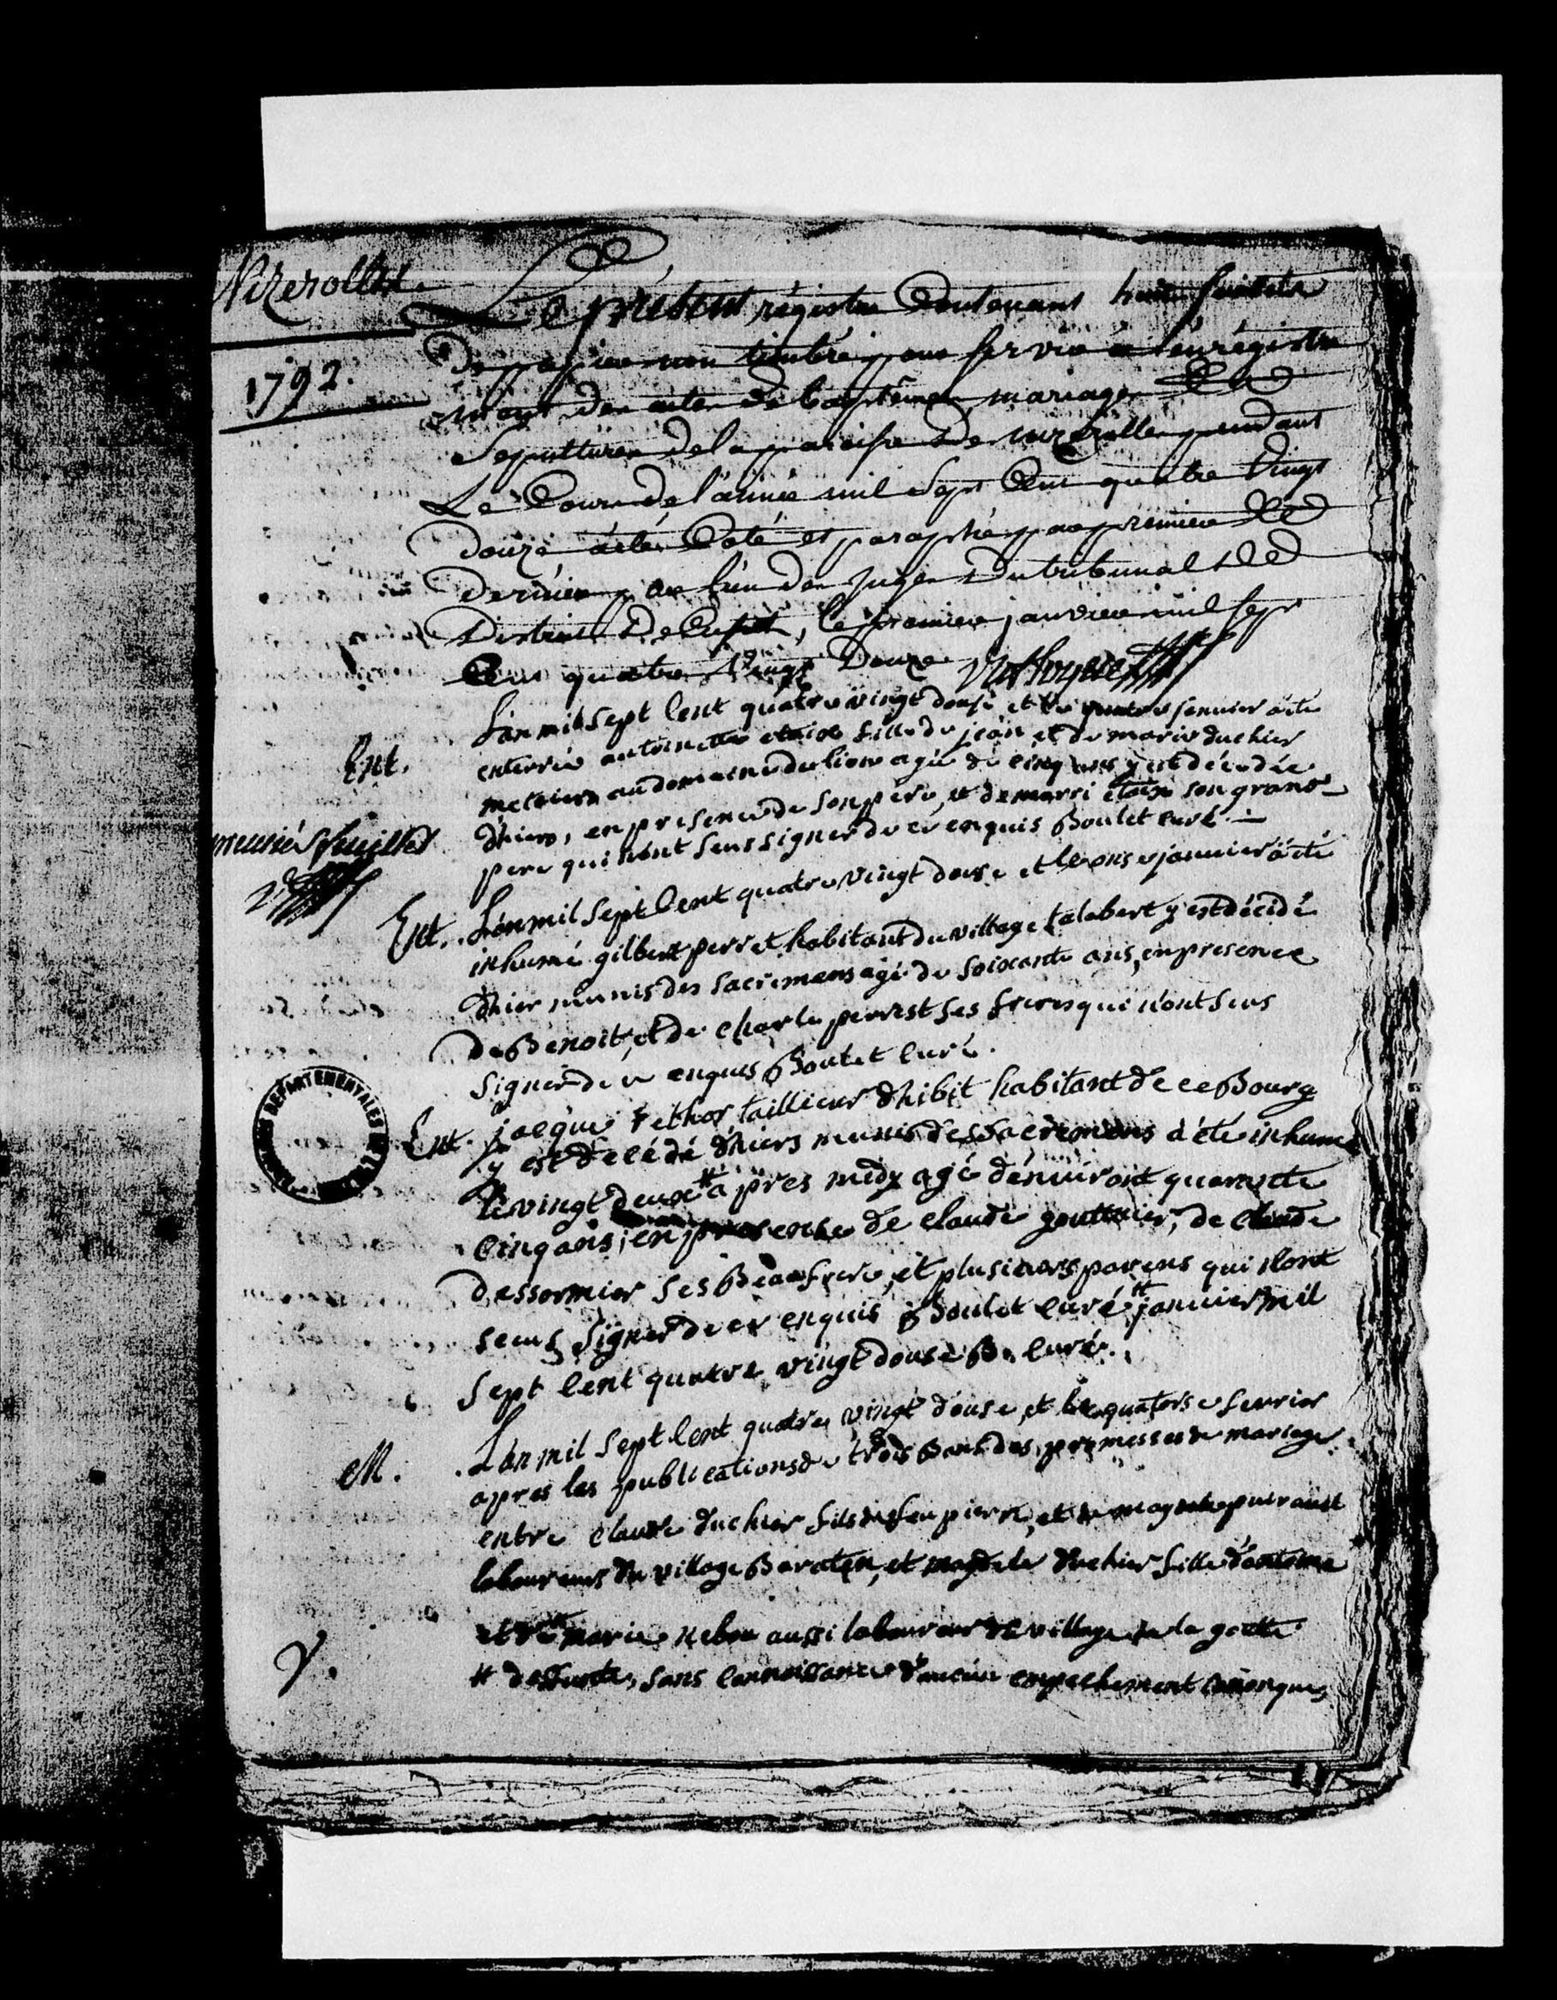 Nizerolles
1792.
Le présent régistre Contenant huit feuillets
De papier non timbré pour servir à l'enrégistre
ment des actes de baptêmes, mariages et
Sepultures de la paroisse de nizerolles pendant
Le Cours de l'année mil Sept Cent quatre Vingt
Douze a été Coté et paraphé par premier et
Dernier par l'un des juges du tribunal de
District De Cusset, le premier janvier mil sept
Cent quatre Vingt Douze
Ent.
L'an mil sept Cent quatre vingt douse et le quatre janvier a été
enterrée antoinette fille de jean et de marie duchier
metaiers au domaine du lion agée de cinq ans y est décédée
d'hiers, en presence de son pere, et de marri son grand
pere qui n'ont seus signer de ce enquis Boulet curé.
premier feuillet
Ent.
L'an mil sept Cent quatre vingt douse et le onse janvier a été
inhumé gilbert perret habitant du village talabert y est décédé
d'hier munis des sacremens agé de soixante ans, en presence
de Benoit, et de Charle perret ses freres qui n'ont seus
signer de ce enquis Boulet curé.
Ent.
jacque rethor taillieur d'hibit habitant de ce Bourg
y est décédé d'hiers munis des sacremens a été inhumé
le vingt deux # apres midy agé d'environt quarante
cinq ans, en presence de claude gouttier, de claude
dessormier ses Beaufrere, et plusieurs parens qui n'ont
seus signer de ce enquis Boulet curé # janvier mil
sept Cent quatre vingt douse B. curé.
M.
L'an mil sept Cent quatre vingt douse, et le quatorse fevrier
apres les publications de trois Bans des promesses de mariage
entre claude duchier fils de feu pierre, et de
laboureurs du village Baratin, et magdele duchier fille d'antoine
et de # marie nebou aussi laboureur du village de la goutte
# deffunte, sans connoissance d'aucun empechement canonques